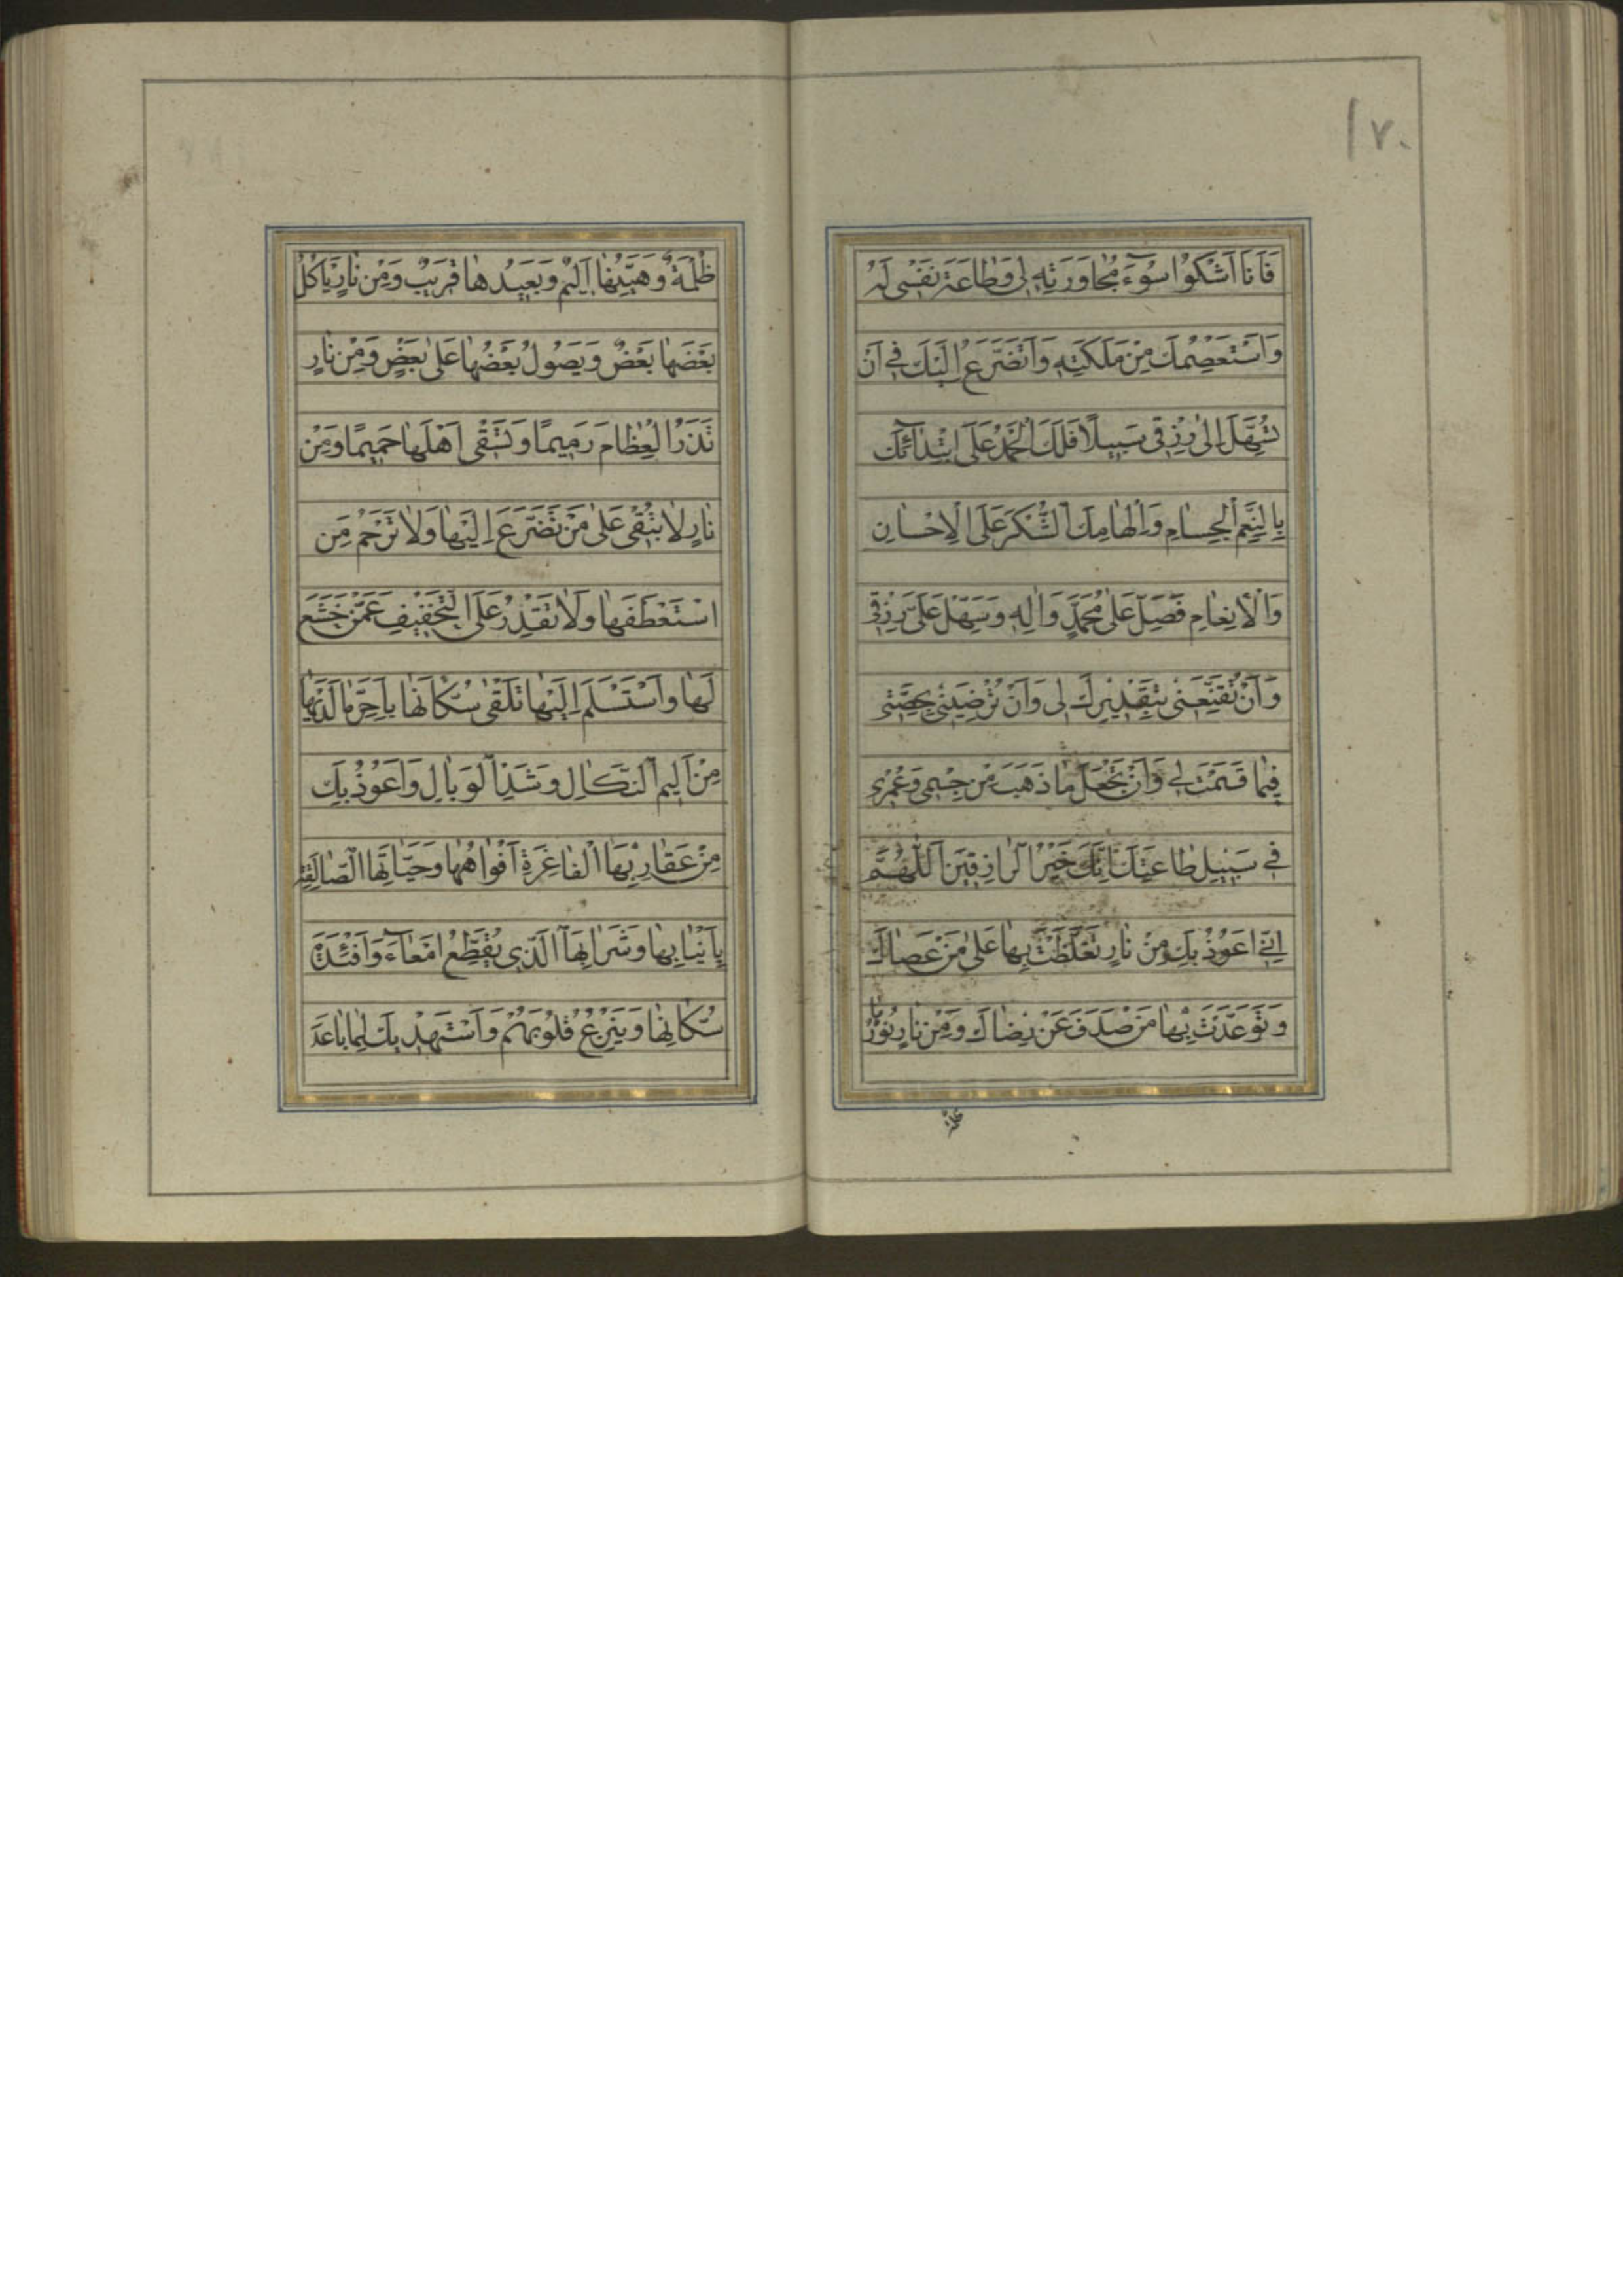 ١٧٠
فَاَنَا اَشْكُوْا سُوٓءَ مُجٰاوَرَتِهِ لى وَطٰاعَةَ نَفْسى لَهُ
وَاَسْتَعْصِمُكَ مِنْ مَلَكَتِهِ وَاَتَضَرَّعُ اِلَيْكَ فى اَنْ
تُسَهِّلَ اِلىٰ رِزْقى سَبيلًا فَلَكَ الْحَمْدُ عَلَى ابْتِدٰآئِكَ
بِالنِّعَمِ الْجِسٰامِ وَاِلْهٰامِكَ الشُّكْرَ عَلَى الْاِحْسٰانِ
وَالْاِنْعٰامِ فَصَلِّ عَلىٰ مُحَمَّدٍ وَاٰلِهِ وَسَهِّلْ عَلَىَّ رِزْقى
وَاَنْ تُقَنِّعَنى بِتَقْديرِكَ لى وَاَنْ تُرْضِيَنى بِحِصَّتى
فيمٰا قَسَمْتَ لى وَاَنْ تَجْعَلَ مٰا ذَهَبَ مِنْ جِسْمى وَعُمْرى
فى سَبيلِ طٰاعَتِكَ اِنَّكَ خَيْرُ الرّٰازِقينَ اَللّٰهُمَّ
اِنّى اَعُوْذُ بِكَ مِنْ نٰارٍ تَغَلَّظْتَ بِهٰا عَلىٰ مَنْ عَصٰاكَ
وَتَوَعَّدْتَ بِهٰا مَنْ صَدَفَ عَنْ رِضٰاكَ وَمِنْ نٰارٍ نُوْرُهٰا
ظُلْمَةٌ وَهَيِّنُهٰا اَليمٌ وَبَعيدُهٰا قَريبٌ وَمِنْ نٰارٍ يَاْكُلُ
بَعْضَهٰا بَعْضٌ وَيَصُولُ بَعْضُهٰا عَلىٰ بَعْضٍ وَمِنْ نٰارٍ
تَذَرُ الْعِظٰامَ رَميمًا وَتَسْقى اَهْلَهٰا حَميمًا وَمِنْ
نٰارٍ لٰا تُبْقى عَلىٰ مَنْ تَضَرَّعَ اِلَيْهٰا وَلٰا تَرْحَمُ مَنِ
اسْتَعْطَفَهٰا وَلٰا تَقْدِرُ عَلَى التَّخْفيفِ عَمَّنْ خَشَعَ
لَهٰا وَاسْتَسْلَمَ اِلَيْهٰا تَلْقىٰ سُكّٰانَهٰا بِاَحَرِّ مٰا لَدَيْهٰا
مِنْ اَليمِ النَّكٰالِ وَشَديدِ الْوَبٰالِ وَاَعُوْذُ بِكَ
مِنْ عَقٰارِبِهَا الْفٰاغِرَةِ اَفْوٰاهُهٰا وَحَيّٰاتِهَا الصّٰالِقَةِ
بِاَنْيٰابِهٰا وَشَرٰابِهَا الَّذى يُقَطِّعُ اَمْعٰآءَ وَاَفْئِدَةَ
سُكّٰانِهٰا وَيَنْزِعُ قُلُوْبَهُمْ وَاَسْتَهْديكَ لِمٰا بٰاعَدَ